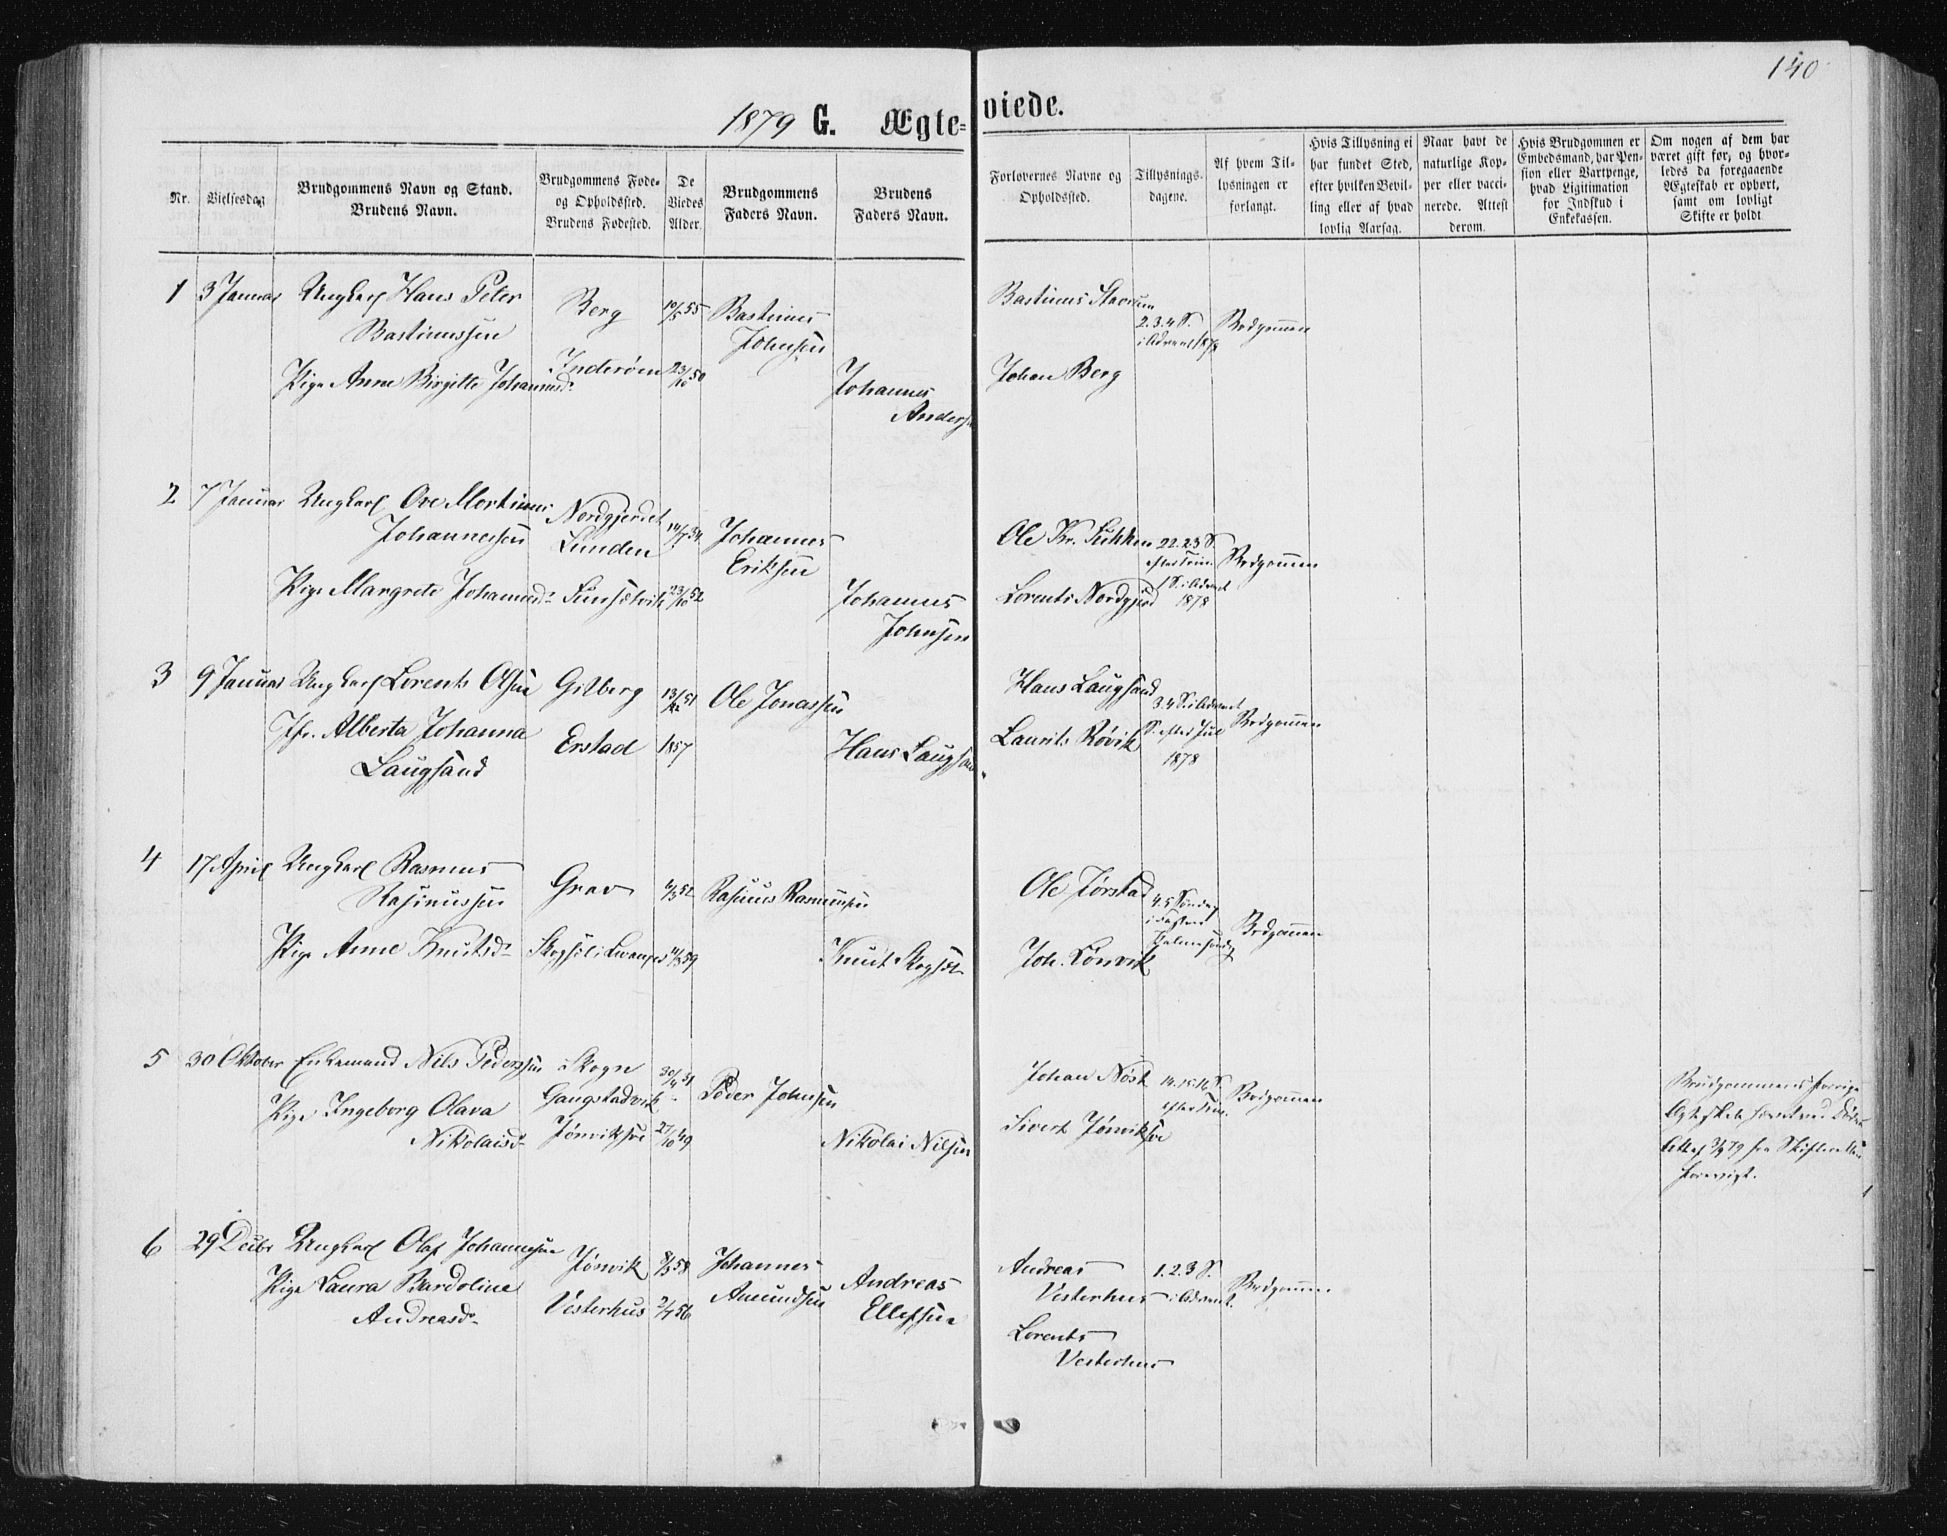 140
1879 G. Ægteviede.
Nr.
Vielsesdag
Brudgommens Navn og Stand.
Brudens Navn.
Brudgommens Føde-
og Opholdssted.
Brudens Fødested.
De
Viedes
Alder.
Brudgommens
Faders Navn.
Brudens
Faders Navn.
Forlovernes Navne og
Opholdssted.
Tillysnings-
dagene.
Af hvem Til-
lysningen er
forlangt.
Hvis Tillysning ei
har fundet Sted,
efter hvilken Bevil-
ling eller af hvad
lovlig Aarsag.
Naar havt de
naturlige Kop-
per eller vacci-
nerede. Attest
derom.
Hvis Brudgommen er
Embedsmand, har Pen-
sion eller Vartpenge,
hvad Ligitimation
for Indskud i
Enkekassen.
Om nogen af dem har
været gift før, og hvor-
ledes da foregaaende
Ægteskab er ophørt,
samt om lovligt
Skifte er holdt
1 3 Januar Ungkarl Hans Peter
Bastinussen
Berg
10/5 55
Bastinus
Johnsen
Bastinus Stavrum
2.3.4 S.
i Advent 1878
Brdgommen
Pige Anne Birgitte Johannesd.
Inderøen
23/10 50
Johannes
Anders
Johan Berg
2 7 Januar Ungkarl Ove Mortinus
Johannessen
Nordgjerdet
Lunden
14/7 34
Johannes
Eriksen
Ole Kr.
22.23 S.
efter Trin.
1 S. i Advent
1878
Brdgommen
Pige Margrete Johannesd.
23/10 52
Johannes
Johnsen
Lorents Nordgjerd
3 9 Januar Ungkarl Lorents Olsen
Gilberg
13/12 51
Ole Jonassen
Hans Laugsand
3.4 S. i Advent
S. efter Jul
1878
Brdgommen
Jfr. Alberta Johanna
Laugsand
Erstad
1857
Hans Laugsand
Laurits Røvik
4 17 April Ungkarl Rasmus
Rasmussen
Grav
6/3 52
Rasmus Rasmussen
Ole Tørstad
4.5 Søndag
i Fasten
Palmesøndag
Brdgommen
Pige Anne Knutsd.
11/3 59
Knut Skogset
Joh. Lønvik
5 30 Oktober Enkemand Nils Pedersen
Skogn
Gangstadvik
30/4 31
Peder Johnsen
Johan Nøst
14.15.16 S.
efter Trin.
Brdgommen
Pige Ingeborg Olava
Nikolaisd.
Jønviksve
27/10 49
Nikolai Nilsen
Sivert Jønviksve
Brudgommens forrige
6 29 Decbr Ungkarl Olaf Johannesen
Jønvik
8/3 58
Johannes
Amundsen
Andreas
Vesterhus
1.2.3 S.
i Advent.
Brdgommen
Pige Laura Bardoline
Andreasd.
Vesterhus
2/7 56
Andreas
Ellefsen
Lorents
Vesterhus